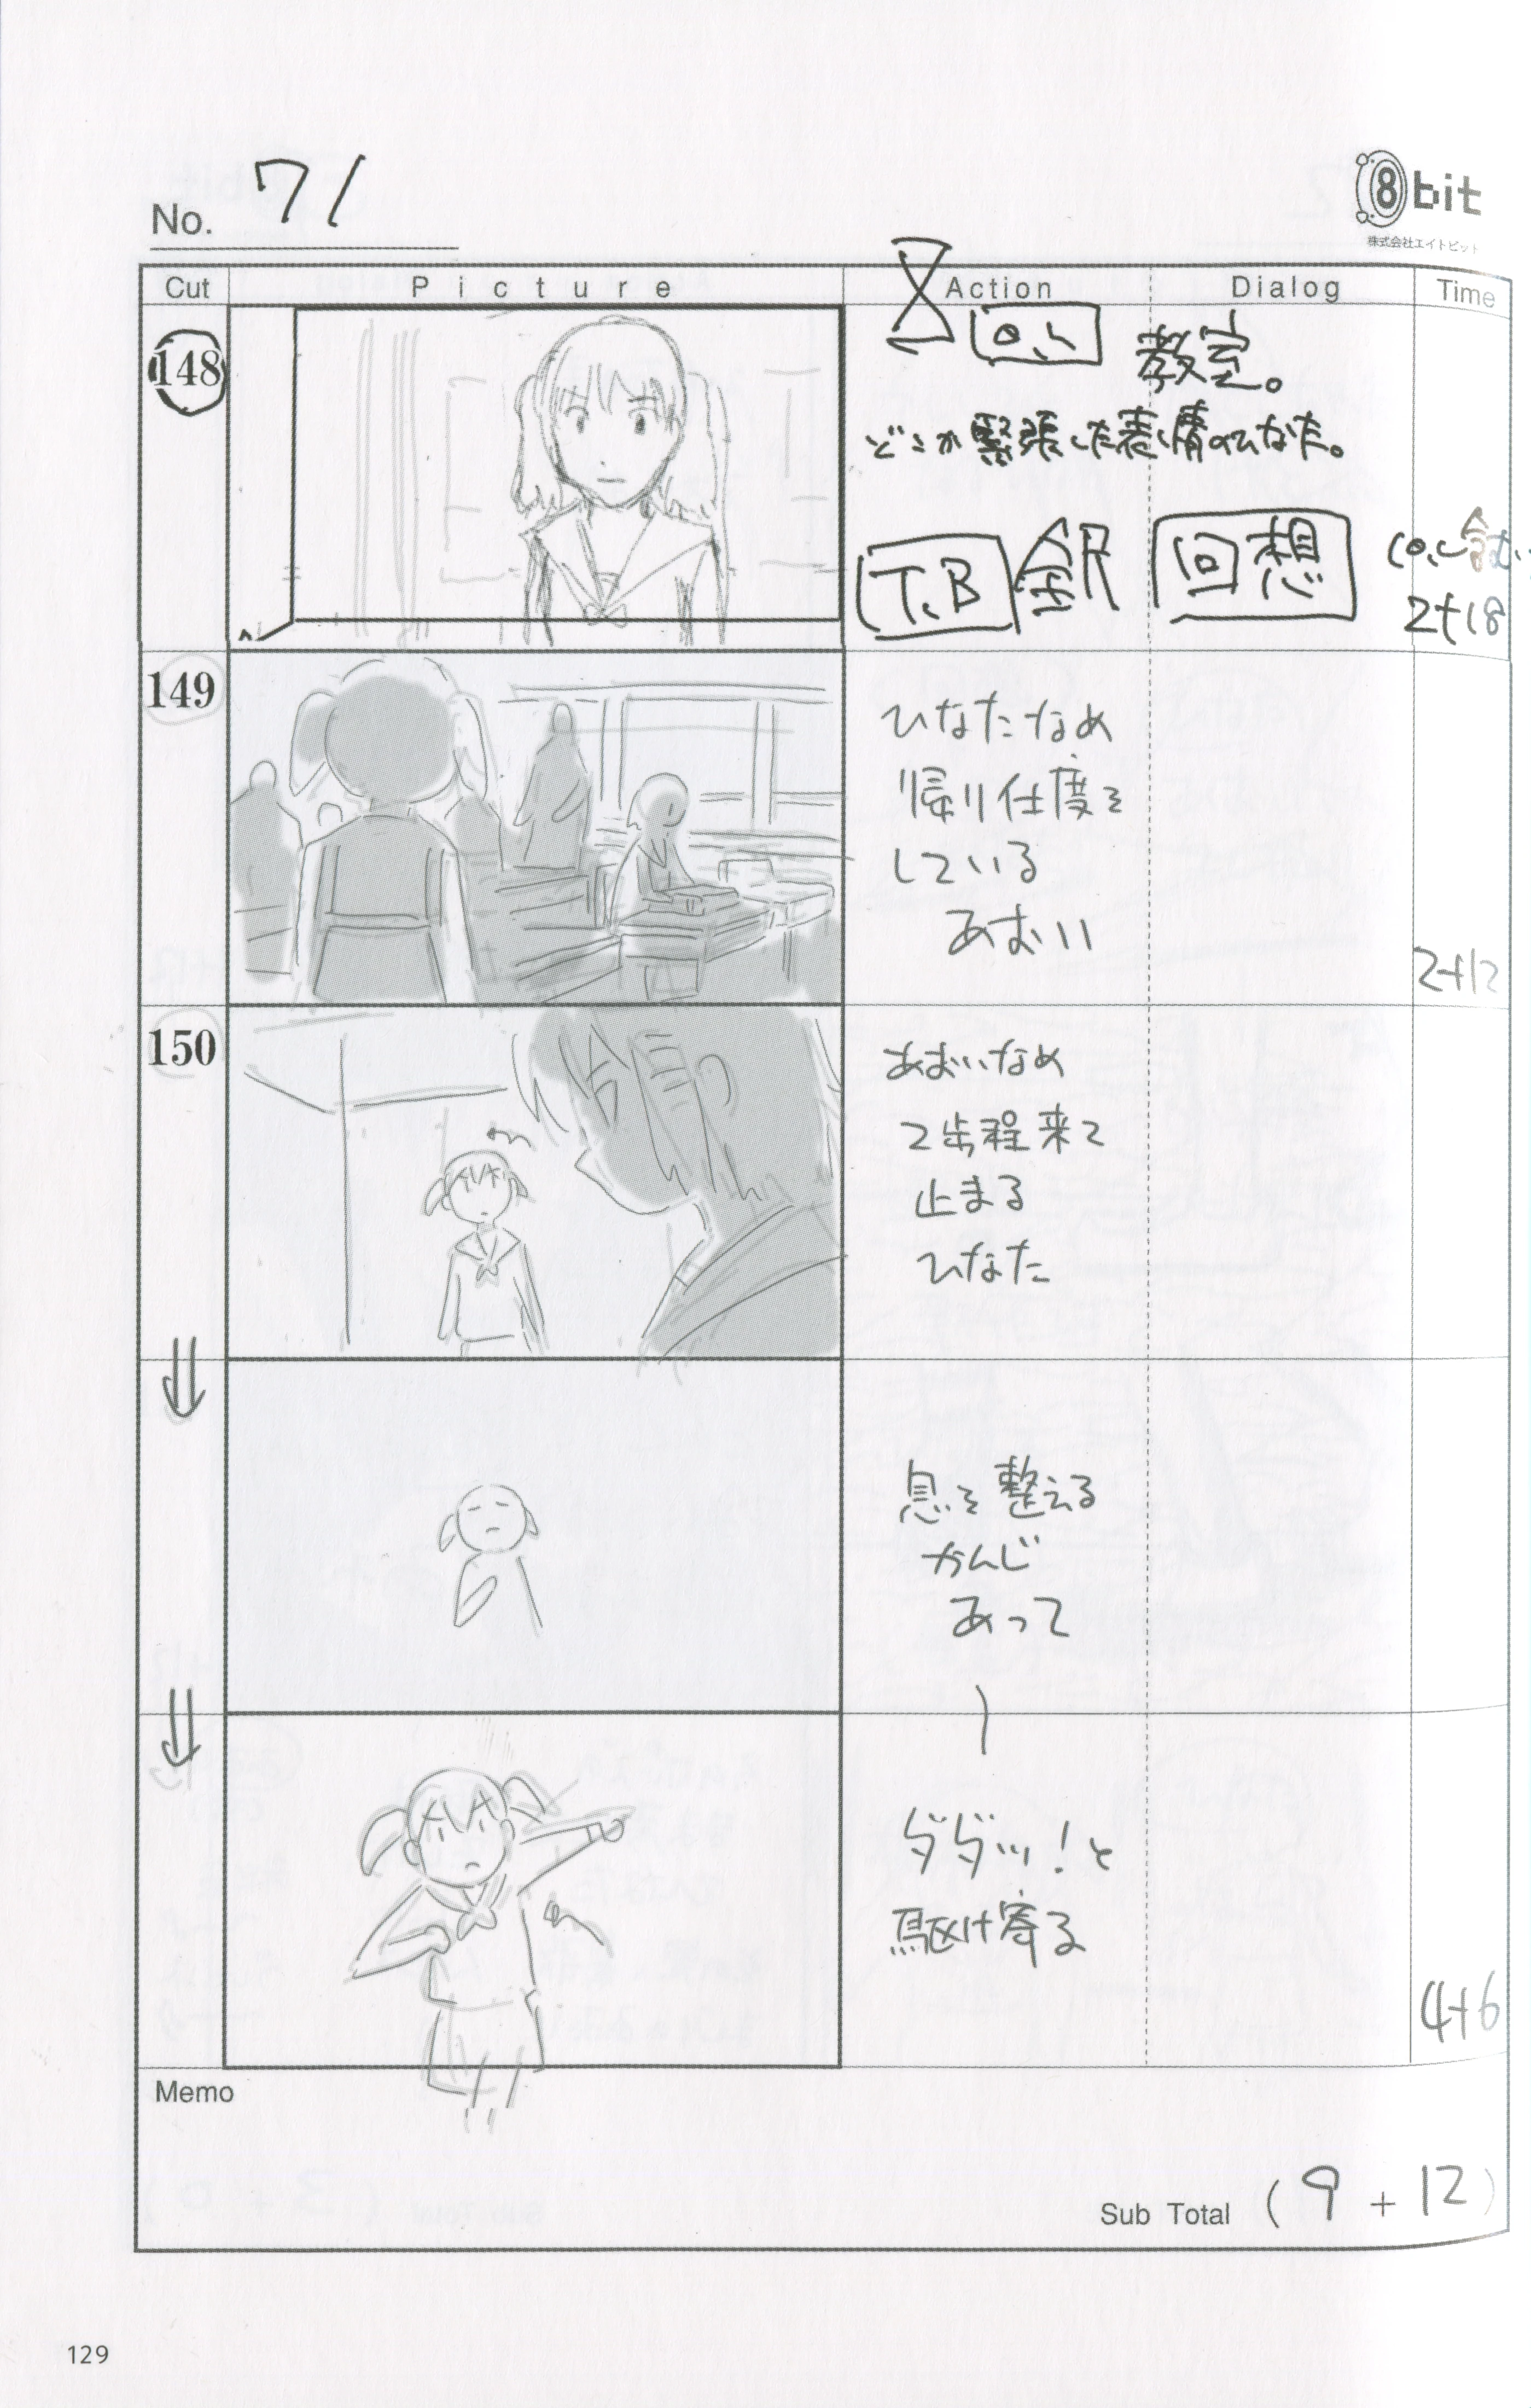 No. 71
8bit
株式会社エイトビット
Cut Picture Action Dialog Time
148
O.L 教室。
どこか緊張した表情のひなた。
T.B 全尺 回想
(O.L含む)
2+18
149
ひなたなめ
帰り仕度を
している
あおい
2+12
150
あおいなめ
2歩程来て
止まる
ひなた
息を整える
かんじ
あって
ダダッ!と
駆け寄る
4+6
Memo
Sub Total (9+12)
129